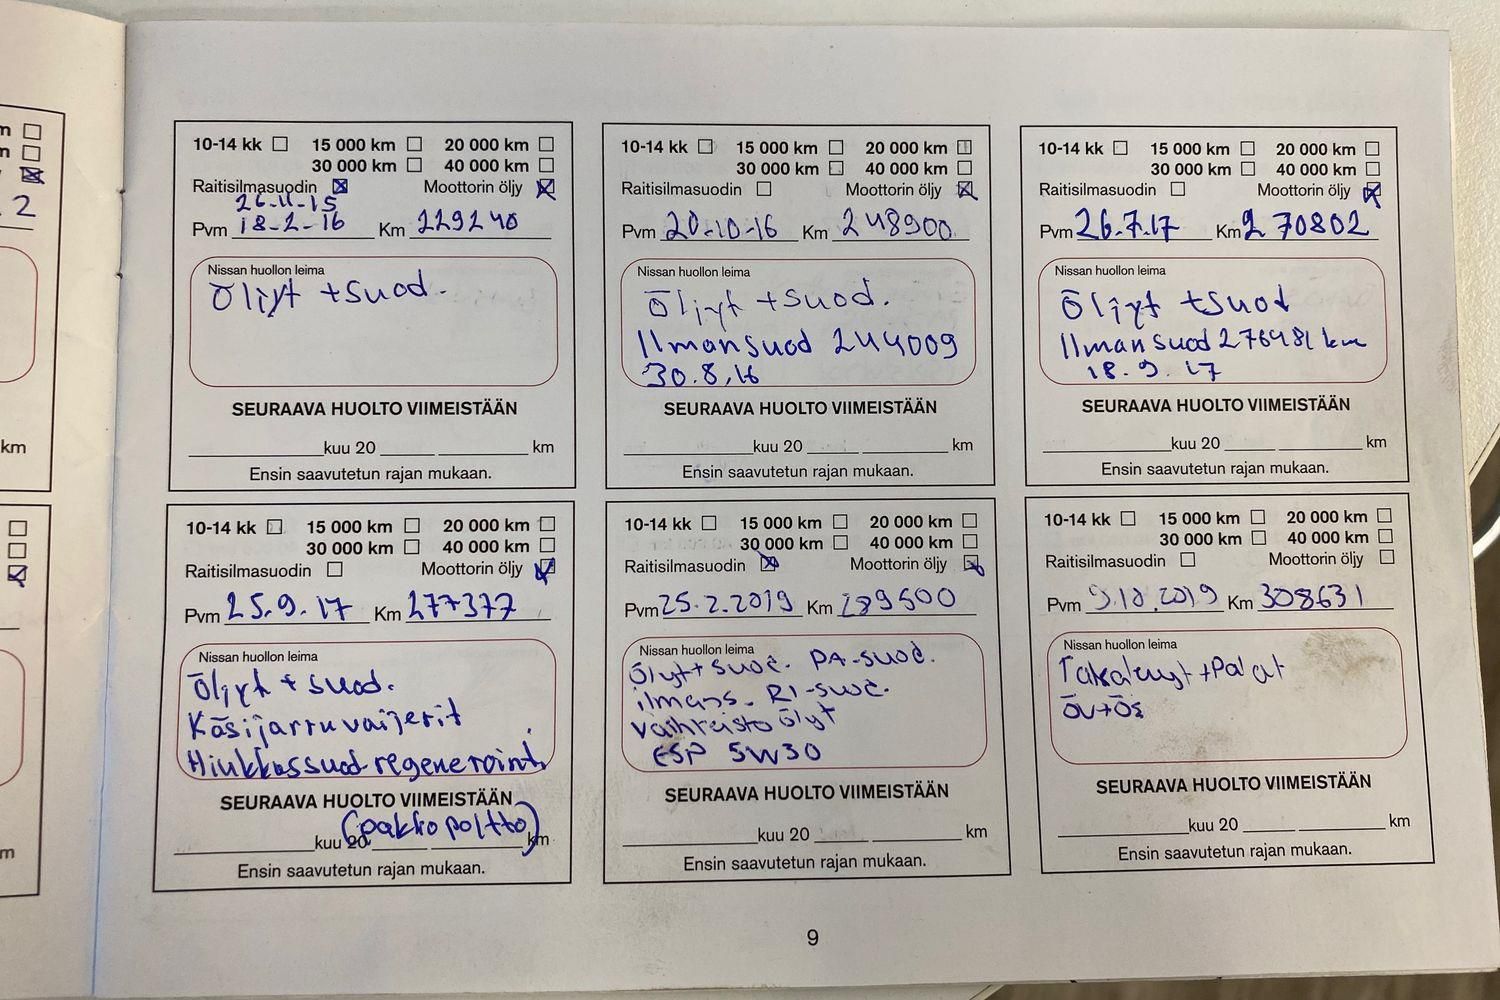 m
m
2
km
m
10-14 kk 15 000 km 20 000 km
30 000 km 40 000 km
Raitisilmasuodin Moottorin öljy
26-11-15
Pvm 18-2-16 Km 229240
Nissan huollon leima
Öljyt + suod.
SEURAAVA HUOLTO VIIMEISTÄÄN
kuu 20 km
Ensin saavutetun rajan mukaan.
10-14 kk 15 000 km 20 000 km
30 000 km 40 000 km
Raitisilmasuodin Moottorin öljy
Pvm 20-10-16 Km 248900
Nissan huollon leima
Öljyt + suod.
Ilmansuod 244009
30.8.16
SEURAAVA HUOLTO VIIMEISTÄÄN
kuu 20 km
Ensin saavutetun rajan mukaan.
10-14 kk 15 000 km 20 000 km
30 000 km 40 000 km
Raitisilmasuodin Moottorin öljy
Pvm 26.7.17 Km 270802
Nissan huollon leima
Öljyt + suod
Ilmansuod 276481 km
18.9.17
SEURAAVA HUOLTO VIIMEISTÄÄN
kuu 20 km
Ensin saavutetun rajan mukaan.
10-14 kk 15 000 km 20 000 km
30 000 km 40 000 km
Raitisilmasuodin Moottorin öljy
Pvm 25.9.17 Km 277377
Nissan huollon leima
Öljyt + suod.
Käsijarru vaijerit
Hiukkassuod. regeneroint.
SEURAAVA HUOLTO VIIMEISTÄÄN
(pakko poltto)
kuu 20 km
Ensin saavutetun rajan mukaan.
10-14 kk 15 000 km 20 000 km
30 000 km 40 000 km
Raitisilmasuodin Moottorin öljy
Pvm 25.2.2019 Km 289500
Nissan huollon leima
Ölyt + suod. PA-suod.
ilmans. RI-suod.
vaihteisto ölyt
ESP 5W30
SEURAAVA HUOLTO VIIMEISTÄÄN
kuu 20 km
Ensin saavutetun rajan mukaan.
10-14 kk 15 000 km 20 000 km
30 000 km 40 000 km
Raitisilmasuodin Moottorin öljy
Pvm 9.10.2019 Km 308631
Nissan huollon leima
+ Palat
ÖV+ÖS
SEURAAVA HUOLTO VIIMEISTÄÄN
kuu 20 km
Ensin saavutetun rajan mukaan.
9